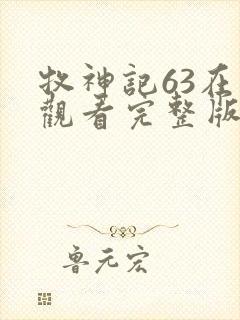 牧神記63在
觀看完整版
魯元宏